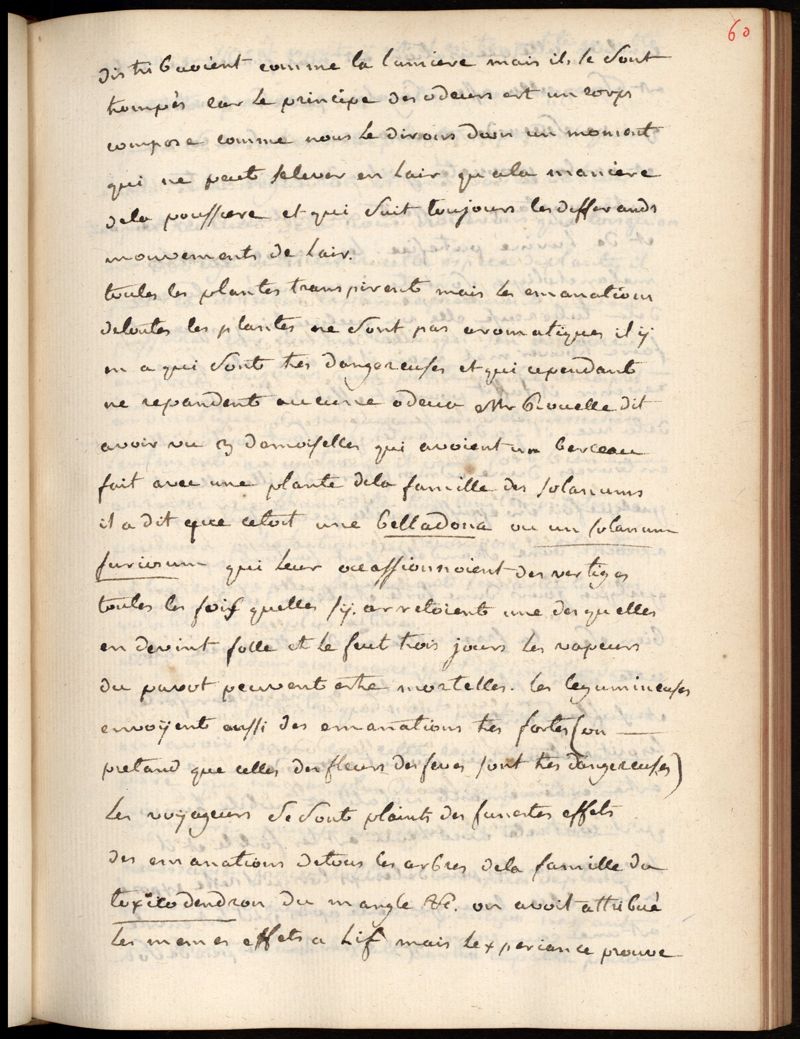 60
distribuoient comme la lumiere mais ils se sont
trompés car le principe des odeurs est un corps
composé comme nous le dirons dans un moment
qui ne peut selever en lair qu ala maniere
dela poussiere et qui suit toujours les differands
mouvements de lair.
toutes les plantes transpirent mais les emanations
detoutes les plantes ne sont pas aromatiques il ÿ
en a qui sont tres dangereuses et qui cependant
ne repandent aucune odeur Mr Rouelle dit
avoir vu 3 demoiselles qui avoient un berceau
fait avec une plante dela famille des solanums
il a dit que cetoit une belladona ou un solanum
furiosum qui leur occassionnoient des vertiges
toutes les foix quelles sÿ arretoient une desquelles
en devint folle et le feut trois jours les vapeurs
du pavot peuvent etre mortelles. les legumineuses
envoÿent aussi des emanations tres fortes (on
pretand que celles des fleurs des feves sont tres dangereuses)
Les voÿageurs se sont plaints des funestes effets
des emanations detous les arbres dela famille du
toxicodendron du mangle &c. on avoit attribué
les memes effets a lif mais lexperiance prouve